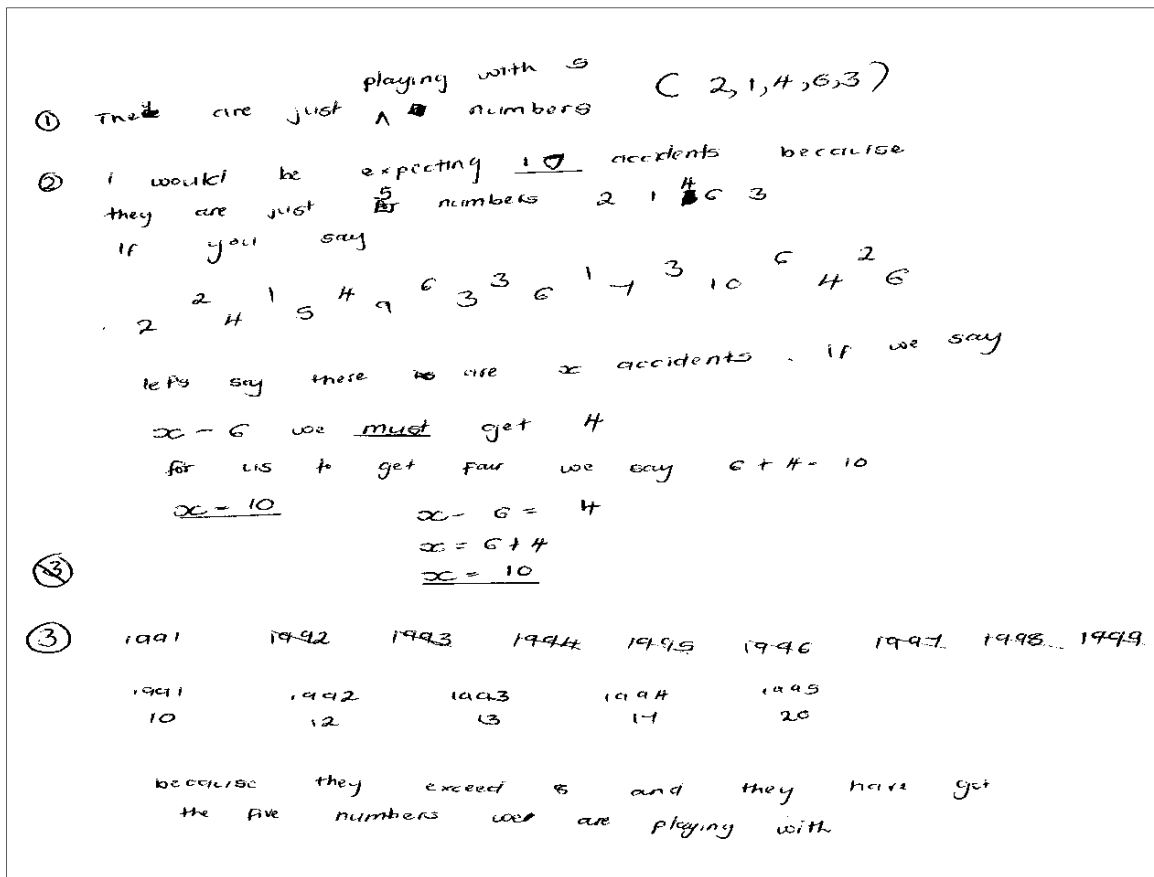 playing with 5 ( 2,1,4,6,3 )
① The are just ^ numbers
② i would be expecting 10 accidents because
they are just 5 numbers 2 1 4 6 3
if you say
2 2 4 1 5 4 9 6 3 3 6 1 7 3 10 6 4 2 6
let's say there are x accidents . if we say
x - 6 we must get 4
for us to get four we say 6 + 4 = 10
x = 10 x - 6 = 4
x = 6 + 4
3 x = 10
③ 1991 1992 1993 1994 1995 1996 1997 1998 1999
1991 1992 1993 1994 1995
10 12 13 17 20
because they exceed 8 and they have got
the five numbers we are playing with